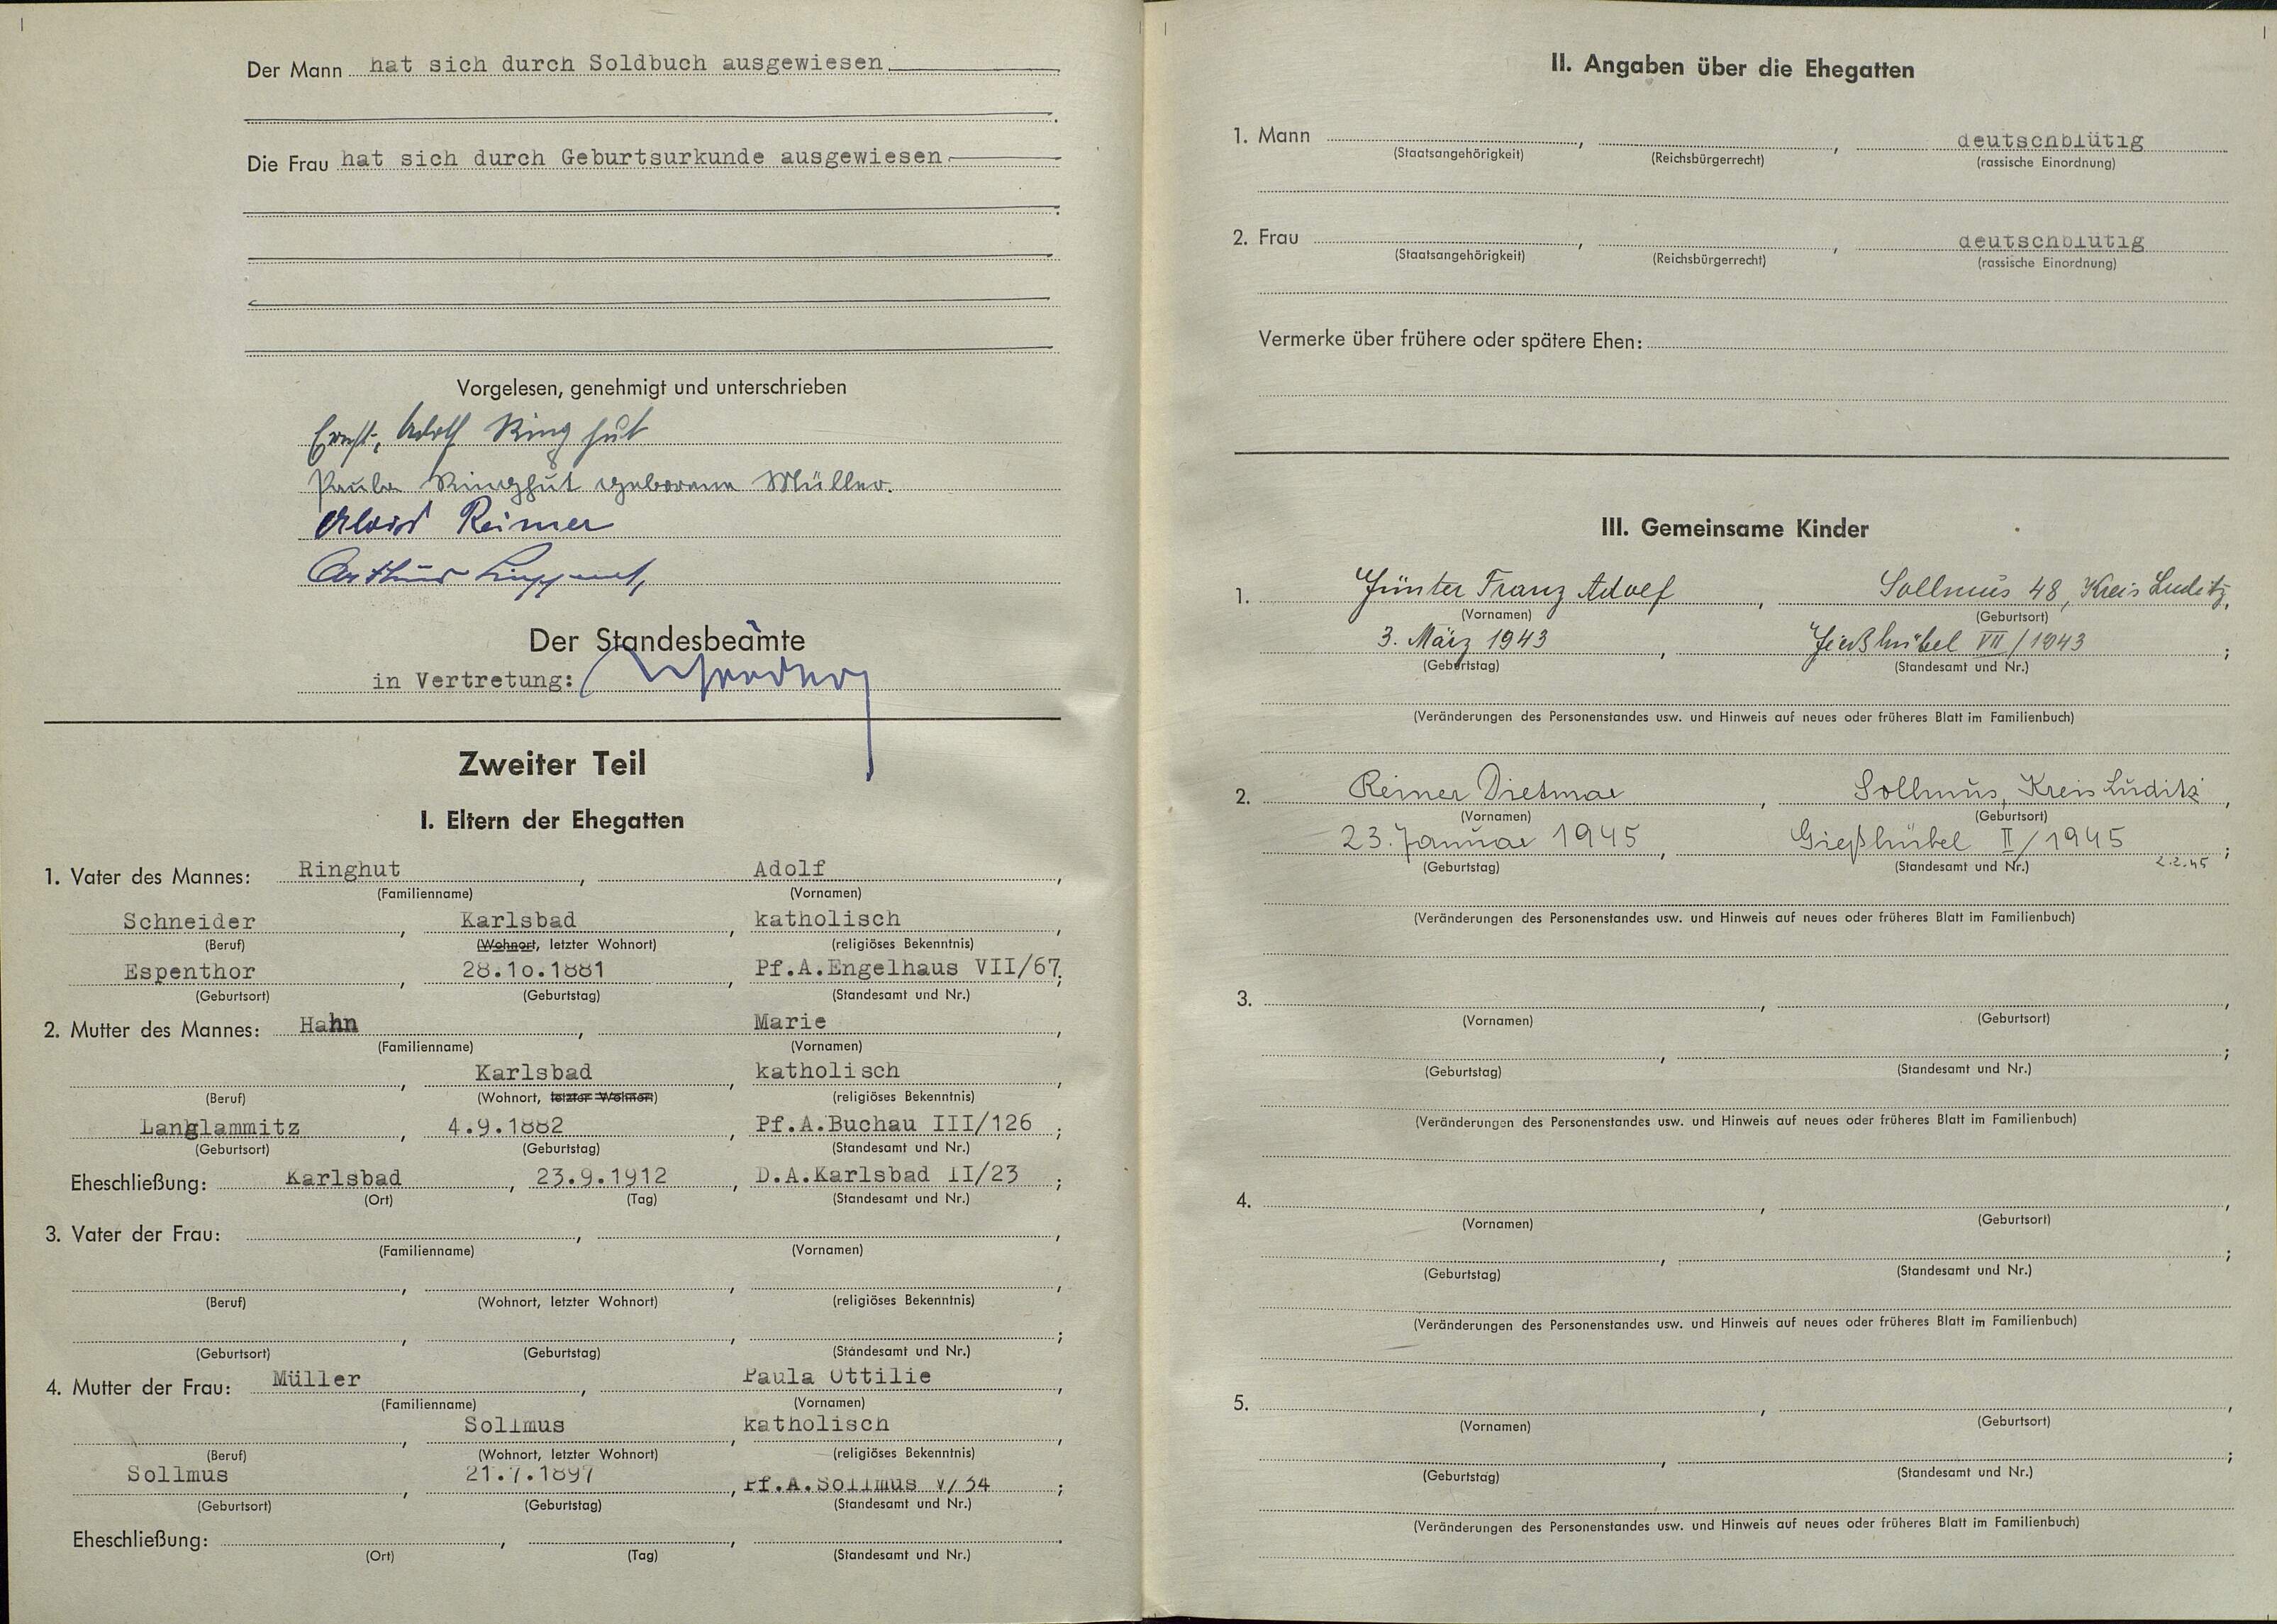 Der Mann hat sich durch Soldbuch ausgewiesen
Die Frau hat sich durch Geburtsurkunde ausgewiesen
Vorgelesen, genehmigt und unterschrieben
Ernst, Adolf Ringhut
Paula Ringhut geborene Müller.
Alois Reimer
Arthur
Der Standesbeamte
in Vertretung:
Zweiter Teil
I. Eltern der Ehegatten
1. Vater des Mannes: Ringhut, Adolf,
(Familienname) (Vornamen)
Schneider, Karlsbad, katholisch,
(Beruf) (Wohnort, letzter Wohnort) (religiöses Bekenntnis)
Espenthor, 28.10.1881, Pf.A.Engelhaus VII/67;
(Geburtsort) (Geburtstag) (Standesamt und Nr.)
2. Mutter des Mannes: Hahn, Marie,
(Familienname) (Vornamen)
, Karlsbad, katholisch,
(Beruf) (Wohnort, letzter Wohnort) (religiöses Bekenntnis)
Langlammitz, 4.9.1882, Pf.A.Buchau III/126;
(Geburtsort) (Geburtstag) (Standesamt und Nr.)
Eheschließung: Karlsbad, 23.9.1912, D.A.Karlsbad II/23;
(Ort) (Tag) (Standesamt und Nr.)
3. Vater der Frau: , ,
(Familienname) (Vornamen)
, , ,
(Beruf) (Wohnort, letzter Wohnort) (religiöses Bekenntnis)
, , ;
(Geburtsort) (Geburtstag) (Standesamt und Nr.)
4. Mutter der Frau: Müller, Paula Ottilie,
(Familienname) (Vornamen)
, Sollmus, katholisch,
(Beruf) (Wohnort, letzter Wohnort) (religiöses Bekenntnis)
Sollmus, 21.7.1897, Pf.A.Sollmus V/34;
(Geburtsort) (Geburtstag) (Standesamt und Nr.)
Eheschließung: , , .
(Ort) (Tag) (Standesamt und Nr.)
II. Angaben über die Ehegatten
1. Mann , , deutschblütig
(Staatsangehörigkeit) (Reichsbürgerrecht) (rassische Einordnung)
2. Frau , , deutschblütig
(Staatsangehörigkeit) (Reichsbürgerrecht) (rassische Einordnung)
Vermerke über frühere oder spätere Ehen:
III. Gemeinsame Kinder
1. Günter Franz Adolf, Sollmus 48, Kreis Luditz,
(Vornamen) (Geburtsort)
3. März 1943, Gießhübel VII/1943;
(Geburtstag) (Standesamt und Nr.)
(Veränderungen des Personenstandes usw. und Hinweis auf neues oder früheres Blatt im Familienbuch)
2. Reiner Dietmar, Sollmus, Kreis Luditz,
(Vornamen) (Geburtsort)
23. Januar 1945, Gießhübel II/1945;
(Geburtstag) (Standesamt und Nr.) 2.2.45
(Veränderungen des Personenstandes usw. und Hinweis auf neues oder früheres Blatt im Familienbuch)
3. , ,
(Vornamen) (Geburtsort)
, ;
(Geburtstag) (Standesamt und Nr.)
(Veränderungen des Personenstandes usw. und Hinweis auf neues oder früheres Blatt im Familienbuch)
4. , ,
(Vornamen) (Geburtsort)
, ;
(Geburtstag) (Standesamt und Nr.)
(Veränderungen des Personenstandes usw. und Hinweis auf neues oder früheres Blatt im Familienbuch)
5. , ,
(Vornamen) (Geburtsort)
, ;
(Geburtstag) (Standesamt und Nr.)
(Veränderungen des Personenstandes usw. und Hinweis auf neues oder früheres Blatt im Familienbuch)